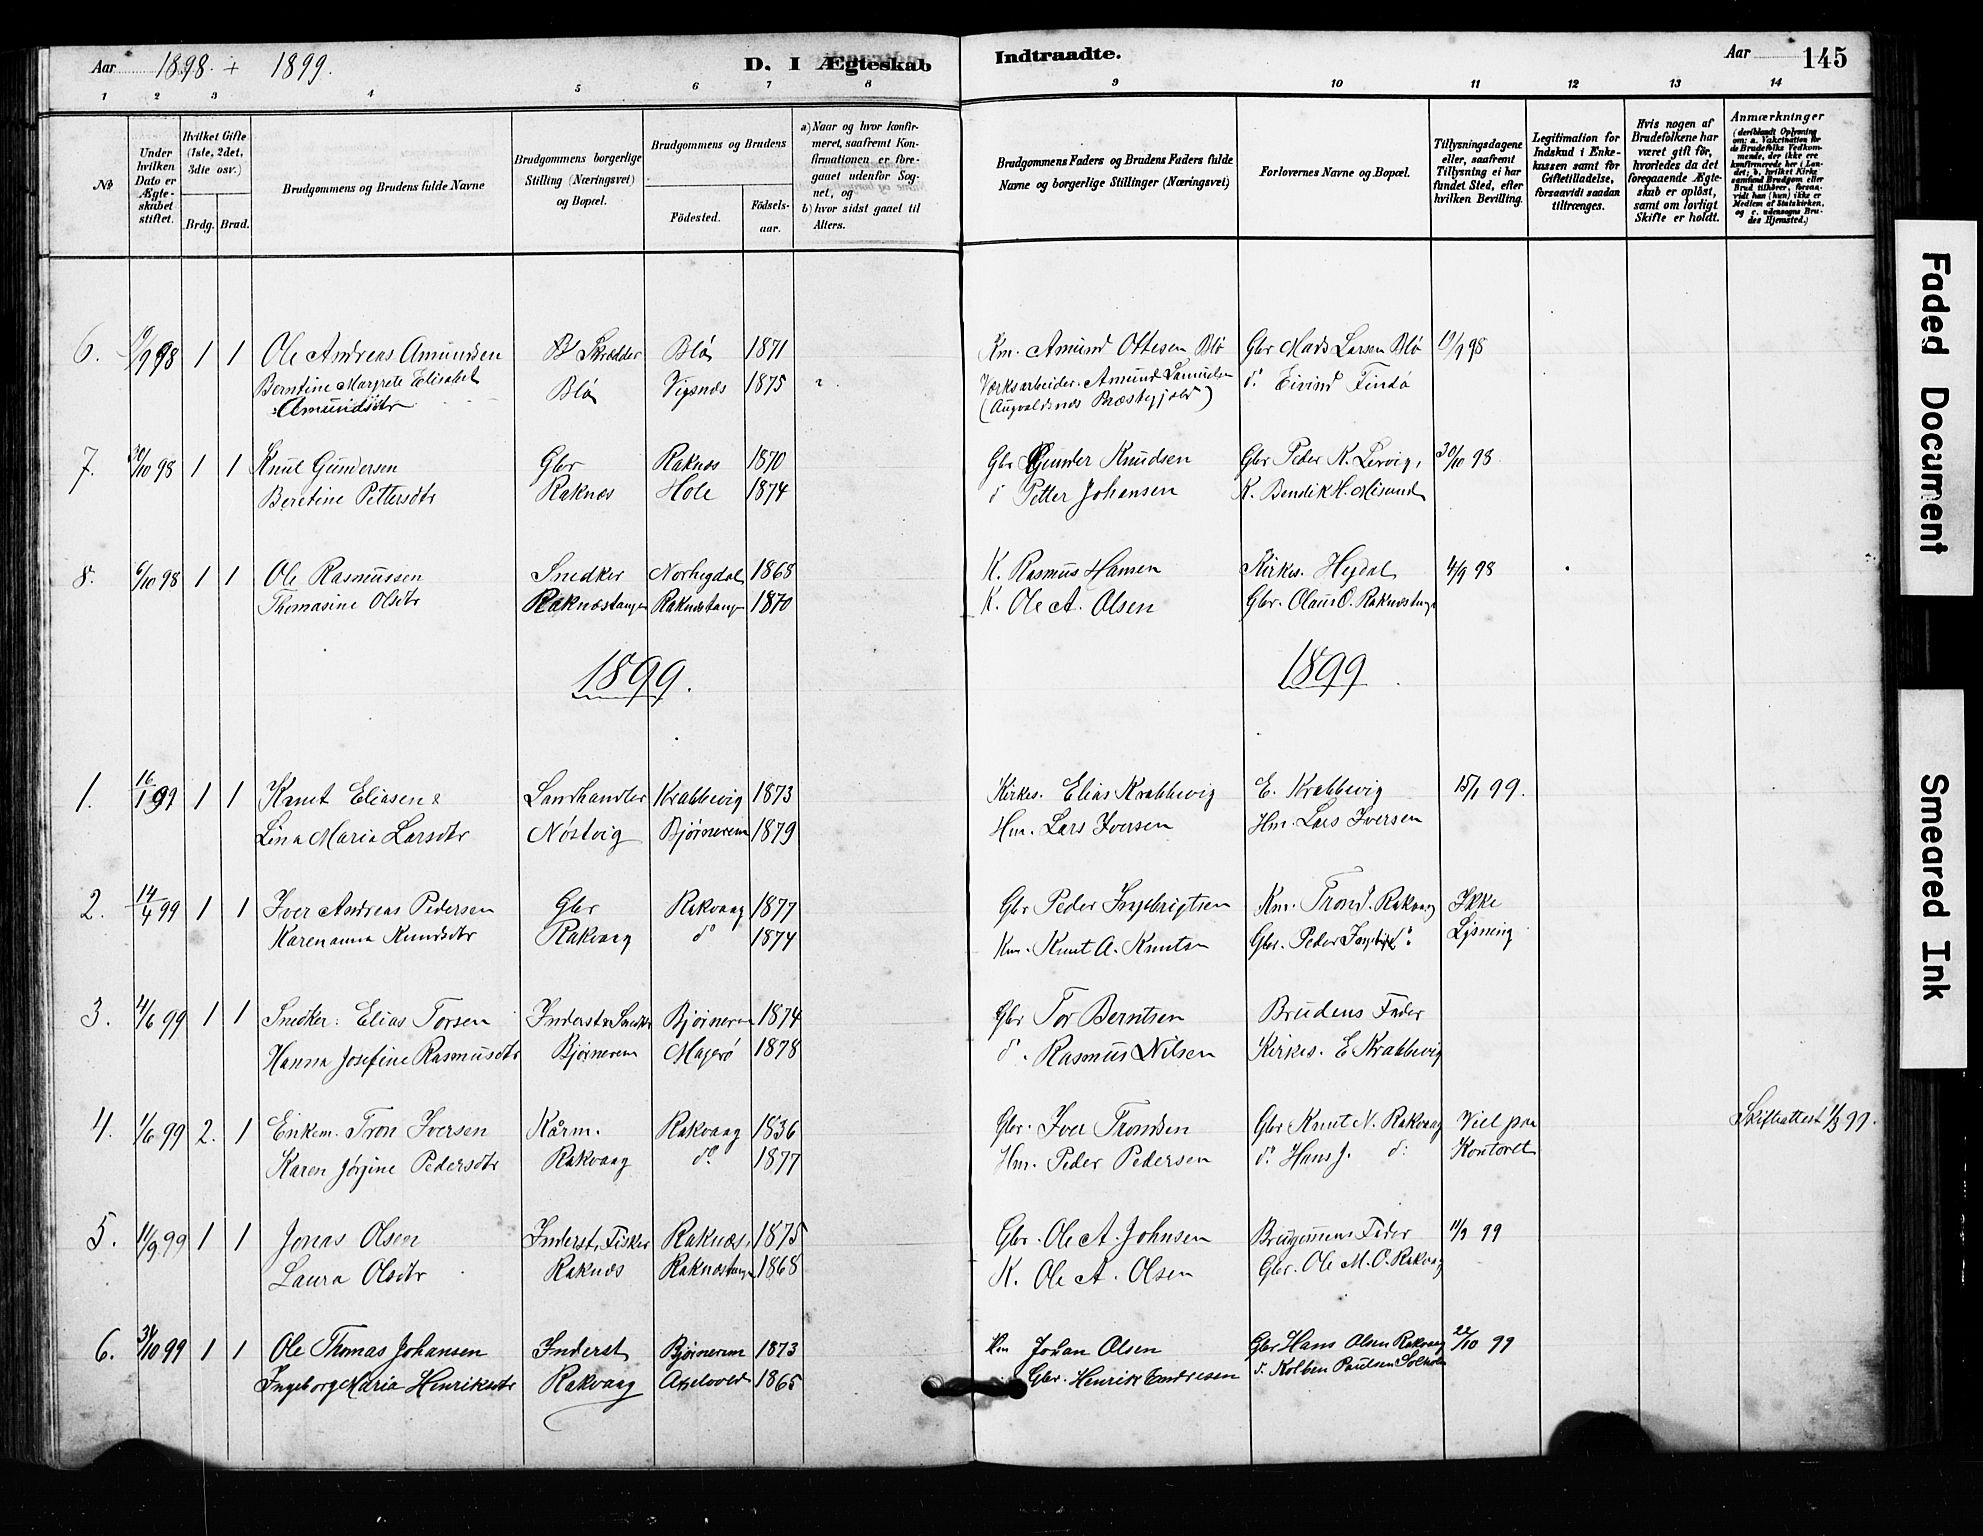 Aar 1898 + 1899. D. I Ægteskab Indtraadte. Aar 145
1 2 3 4 5 6 7 8 9 10 11 12 13 14
No
Under hvilken Dato er Ægteskabet stiftet.
Hvilket Gifte (1ste, 2det, 3die osv.)
Brdg. Brud.
Brudgommens og Brudens fulde Navne
Brudgommens borgerlige Stilling (Næringsvei) og Bopæl.
Brudgommens og Brudens
Födested. Födselsaar.
a) Naar og hvor Konfirmeret, saafremt Konfirmationen er foregaaet udenfor Sognet, og
b) hvor sidst gaaet til Alters.
Brudgommens Faders og Brudens Faders fulde Navne og borgerlige Stillinger (Næringsvei)
Forlovernes Navne og Bopæl.
Tillysningsdagene eller, saafremt Tillysning ei har fundet Sted, efter hvilken Bevilling.
Legitimation for Indskud i Enkekassen samt for Giftetilladelse, forsaavidt saadan tiltrænges.
Hvis nogen af Brudefolkene har været gift för, hvorledes da det foregaaende Ægteskab er oplöst, samt om lovligt Skifte er holdt.
Anmærkninger (deriblandt Oplysning om: a. Vakcination for de Brudefolks Vedkommende, der ikke ere konfirmerede her i Landet; b. hvilket Kirkesamfund Brudgom eller Brud tilhörer, forsaavidt han (hun) ikke er Medlem af Statskirken, og c. udensogns Brudes Hjemsted.)
6. 9/9 98 1 1 Ole Andreas Amundsen Skrædder Blø 1871 Km. Amund Ottesen Blø Gbr Mads Larsen Blø 98
Berntine Margrete Elisabet Blø Vigsnes 1875 Værksarbeider. Amund Samuelsen d. Eivind Findø
Amundsdtr (Augvaldsnes Præstegjæld)
7. 30/10 98 1 1 Knut Gundersen Gbr Raknes 1870 Gbr Gunder Knudsen Gbr Peder K. Lervig, 30/10 98
Beretine Pettersdtr Raknæs Hole 1874 d Petter Johansen K. Bendik H. Misund
8. 6/10 98 1 1 Ole Rasmussen Snedker Norhegdal 1868 K. Rasmus Hansen Kirkes. Hegdal 4/9 98
Thomasine Olsdtr Raknæstangen Raknæstangen 1870 K. Ole A. Olsen Gbr. Olaus O. Raknæstange
1899. 1899
1. 16/1 99 1 1 Knut Eliasen Landhandler Krabbevig 1873 Kirkes. Elias Krabbevig E. Krabbevig 15/1 99.
Lina Maria Larsdtr Nøstvig Bjørnerem 1879 Hm. Lars Iversen Hm. Lars Iversen
2. 14/4 99 1 1 Iver Andreas Pedersen Gbr Rakvaag 1877 Gbr Peder Ingebrigtsen Km. Trond. Rakvaag Ikke
Karenanna Knudsdtr Rakvaag do 1874 Km. Knut A. Knutsn Gbr. Peder Lysning
3. 4/6 99 1 1 Snedker: Elias Torsen Inderst Snedkr Bjørnerem 1874 Gbr Tor Berntsen Brudens Fader
Hanna Josefine Rasmusdtr Bjørnerem Magerø 1878 d. Rasmus Nilsen Kirkes. E Krabbevig
4. 1/6 99 2. 1 Enkem. Tron Iversen Kårm. Rakvaag 1836 Gbr. Iver Tronsen Gbr Knut N. Rakvaag Viel paa Skifteattest 1/3 99.
Karen Jørgine Pedersdtr Rakvaag do 1877 Hm. Peder Pedersen d. Hans J. d: Kontoret
5. 11/9 99 1 1 Jonas Olsen Inderst, Fisker Raknæs. 1875 Gbr. Ole A. Johnsen Brudgommens Fader 11/9 99
Laura Olsdtr Raknæs Raknæstangen 1868 K. Ole A. Olsen Gbr. Ole M. O. Rakvaag
6. 31/10 99 1 1 Ole Thomas Johansen Inderst Bjørnerem 1873 Hm Johan Olsen Gbr Hans Olsen Rakvaag 22/10 99
Ingeborg Maria Henriksdtr Rakvaag Axelvold 1865 Gbr. Henrik Endresen d. Kolben Paulsen Solholm
Faded Document
Smeared Ink